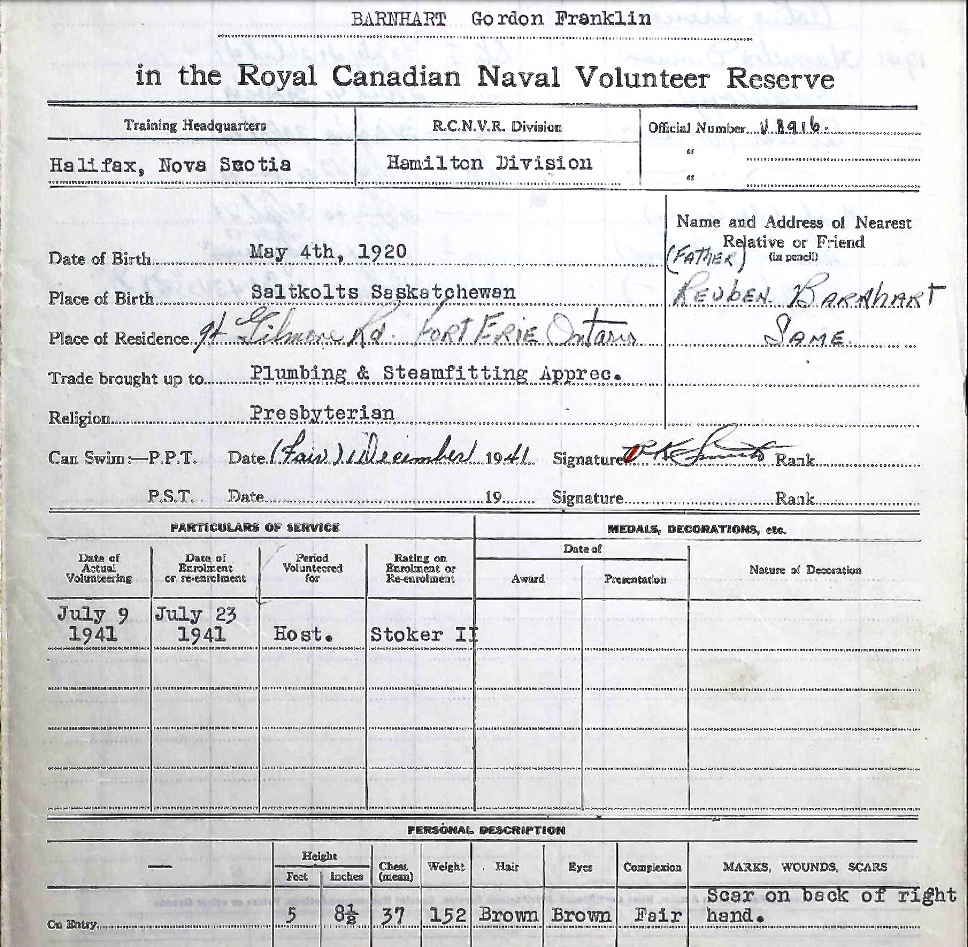 BARNHART Gordon Franklin
in the Royal Canadian Naval Volunteer Reserve
Training Headquarters
R.C.N.V.R. Division
Official Number V 8916.
"
"
Halifax, Nova Scotia
Hamilton Division
Name and Address of Nearest
Relative or Friend
(in pencil)
(FATHER)
REUBEN BARNHART
SAME
Date of Birth May 4th, 1920
Place of Birth Saltkolts Saskatchewan
Place of Residence Gilmore Rd. FORT ERIE Ontario
Trade brought up to Plumbing & Steamfitting Apprec.
Religion Presbyterian
Can Swim:—P.P.T. Date (Fair) 1 December 1941 Signature Smith Rank
P.S.T. Date 19 Signature Rank
PARTICULARS OF SERVICE
MEDALS, DECORATIONS, etc.
Date of Actual Volunteering
Date of Enrolment or re-enrolment
Period Volunteered for
Rating on Enrolment or Re-enrolment
Date of
Award
Presentation
Nature of Decoration
July 9 1941
July 23 1941
Host.
Stoker II
PERSONAL DESCRIPTION
—
Height
Feet
Inches
Chest (mean)
Weight
Hair
Eyes
Complexion
MARKS, WOUNDS, SCARS
On Entry 5 8½ 37 152 Brown Brown Fair Scar on back of right hand.